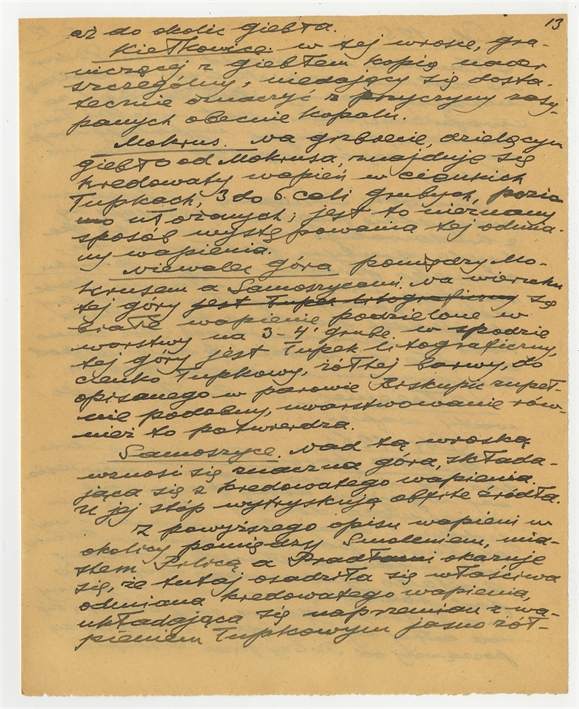 13
aż do okolic giebła.
Kiełkowice. w tej wiosce, gra-
niczącej z giebłem kopią nader
szczególny, niedający się dosta-
tecznie oznaczyć z przyczyny zasy-
panych obecnie kopalń.
Mokrus. Na grzbiecie, dzielącym
giebło od Mokrusa, znajduje się
kredowaty wapień w cienkich
łupkach, 3 do 6 cali grubych, pozio
mo ułożonych; jest to nieznany
sposób występowania tej odmia-
ny wapienia.
góra pomiędzy Mo-
krusem a Samoszycami. Na wierzchu
tej góry jest łupek litograficzny są
białe wapienie podzielone w
warstwy na 3-4' grube, w spodzie
tej góry jest łupek litograficzny,
cienko łupkowy, żółtej barwy, do
opisanego w parowie Biskupic zupeł-
nie podobny, uwarstwowanie rów-
nież to potwierdza.
Samoszyce. Nad tą wioską
wznosi się znaczna góra, składa-
jąca się z kredowatego wapienia.
U jej stóp wytryskują obfite źródła.
Z powyższego opisu wapieni w
okolicy pomiędzy Smoleniem, mia-
stem Pilicą a Pradłami okazuje
się, że tutaj osadziła się właściwa
odmiana kredowatego wapienia,
układająca się naprzemian z wa-
pieniem łupkowym jasno żół-